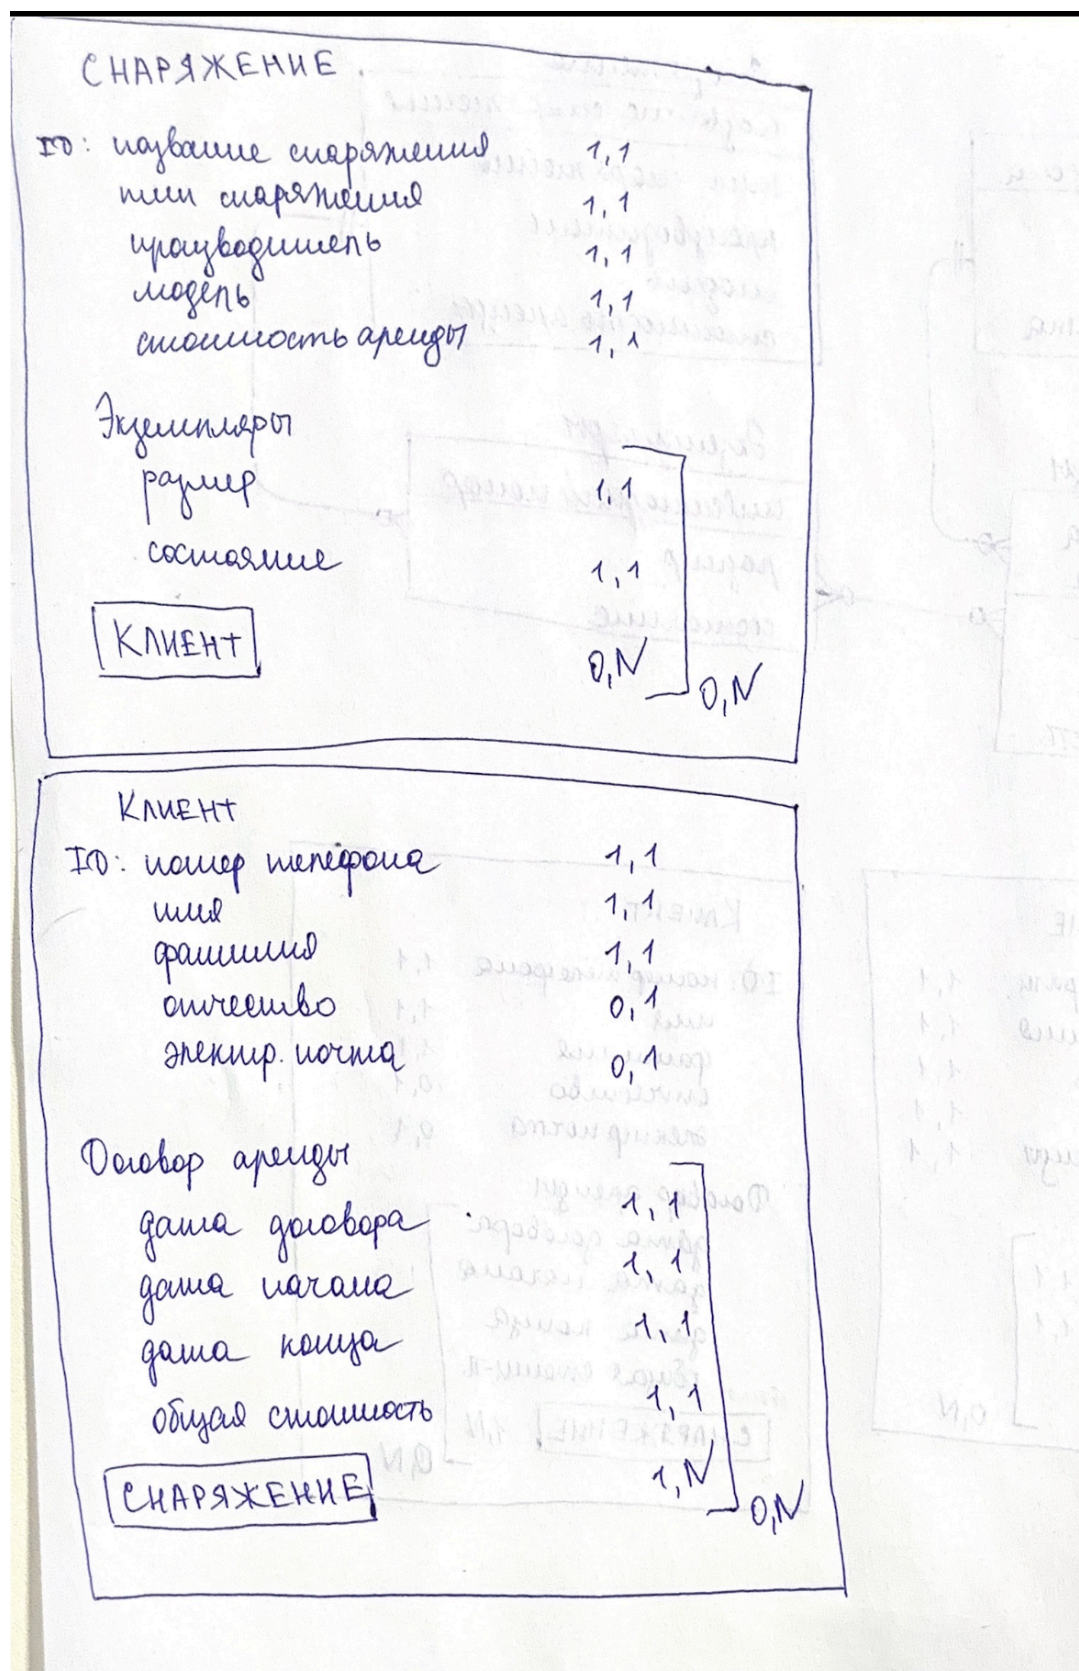 СНАРЯЖЕНИЕ
ID: название снаряжения 1,1
тип снаряжения 1,1
производитель 1,1
модель 1,1
стоимость аренды 1,1
Экземпляры
размер 1,1
состояние 1,1
КЛИЕНТ 0,N
0,N
КЛИЕНТ
ID: номер телефона 1,1
имя 1,1
фамилия 1,1
отчество 0,1
электр. почта 0,1
Договор аренды
дата договора 1,1
дата начала 1,1
дата конца 1,1
общая стоимость 1,1
СНАРЯЖЕНИЕ 1,N
0,N